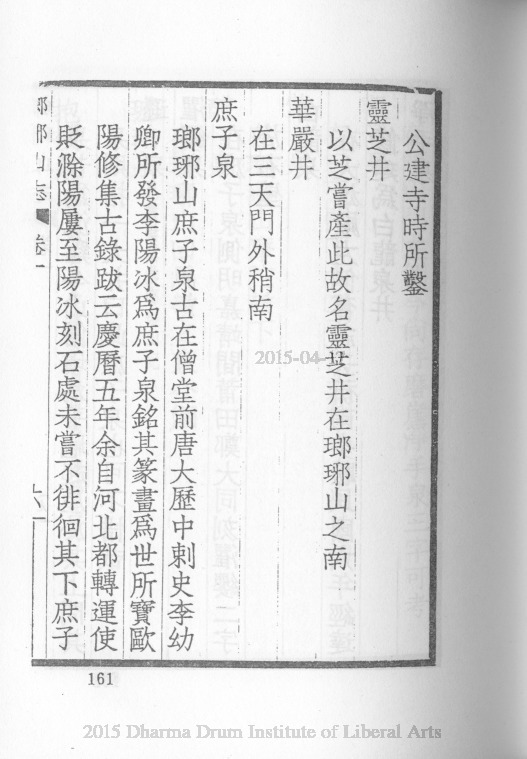 公建寺時所鑿
靈芝井
以芝嘗產此故名靈芝井在瑯琊山之南
華嚴井
在三天門外稍南
庶子泉
瑯琊山庶子泉古在僧堂前唐大歷中刺史李幼
卿所發李陽冰爲庶子泉銘其篆畫爲世所寶歐
陽修集古錄跋云慶曆五年余自河北都轉運使
貶滁陽屢至陽冰刻石處未嘗不徘徊其下庶子
瑯琊山志 卷一
161
2015-04-
2015 Dharma Drum Institute of Liberal Arts